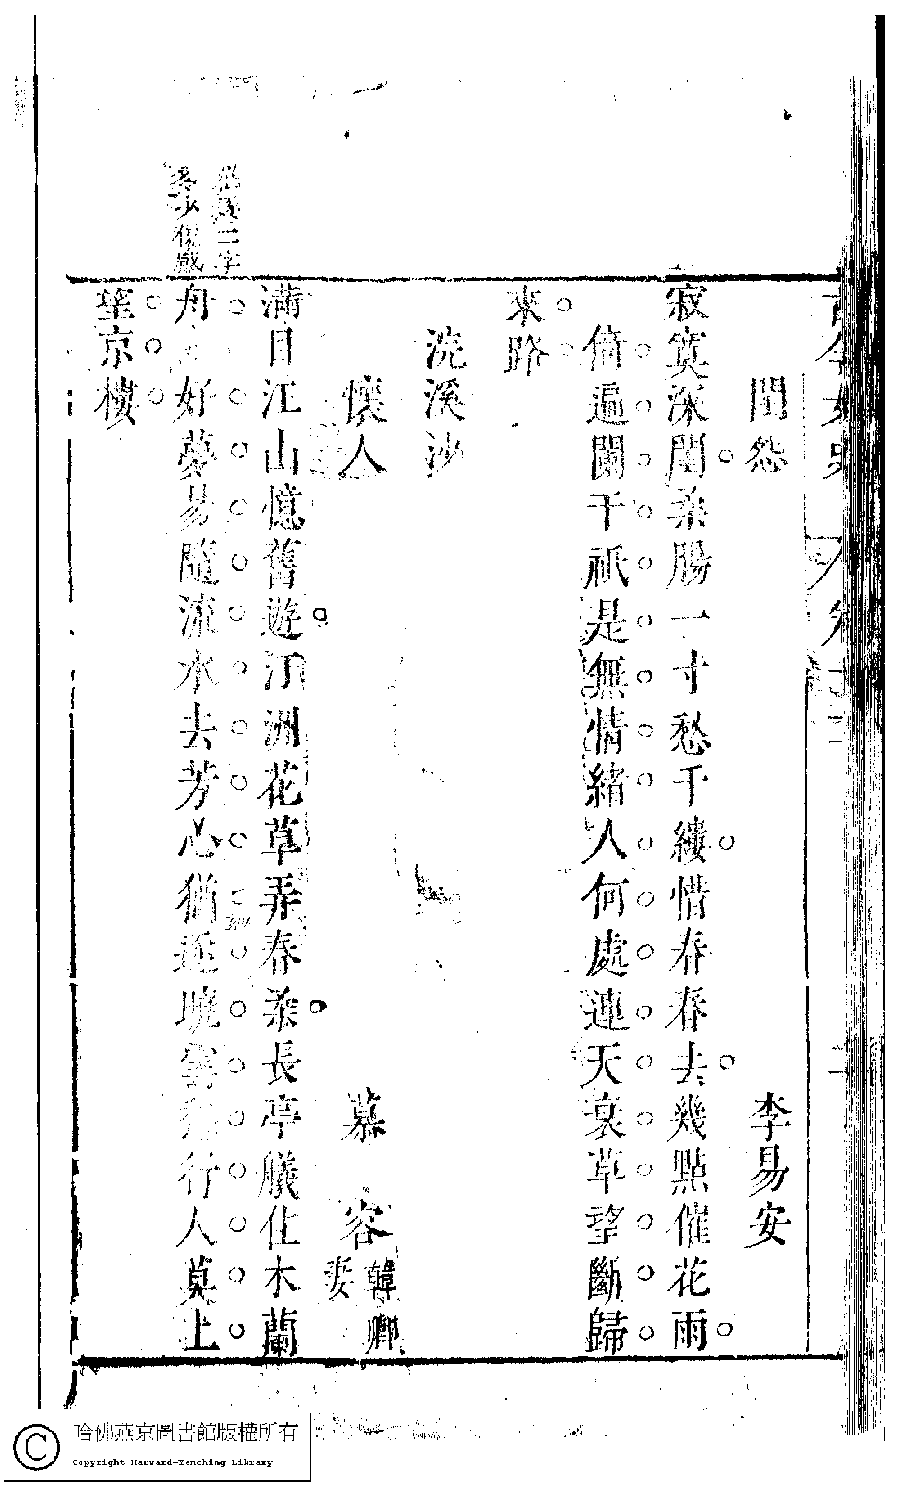 古今女史 卷十二 二
閨怨 李易安
寂寞深閨柔腸一寸愁千縷惜春春去幾點催花雨
倚遍闌干祇是無情緒人何處連天衰草望斷歸
來路
浣溪沙
懷人 慕容 韓卿妻
滿目江山憶舊遊汀洲花草弄春柔長亭艤住木蘭
舟好夢易隨流水去芳心猶逐曉雲愁行人莫上
望京樓
逐二字
多少傷感
哈佛燕京圖書館版權所有
Copyright Harvard-Yenching Library